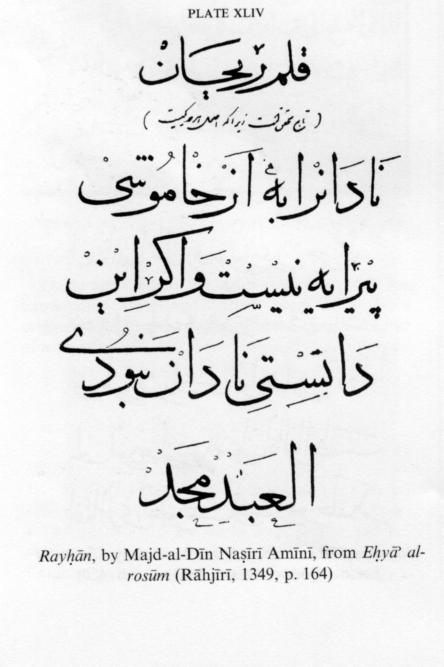 PLATE XLIV
قلم ریحان
نادانرا به از خاموشی
پیرایه نیست و اگر این
دانستی نادان نبودی
العبد مجد
Rayḥān, by Majd-al-Dīn Naṣīrī Amīnī, from Eḥyāʾ al-
rosūm (Rāhjīrī, 1349, p. 164)